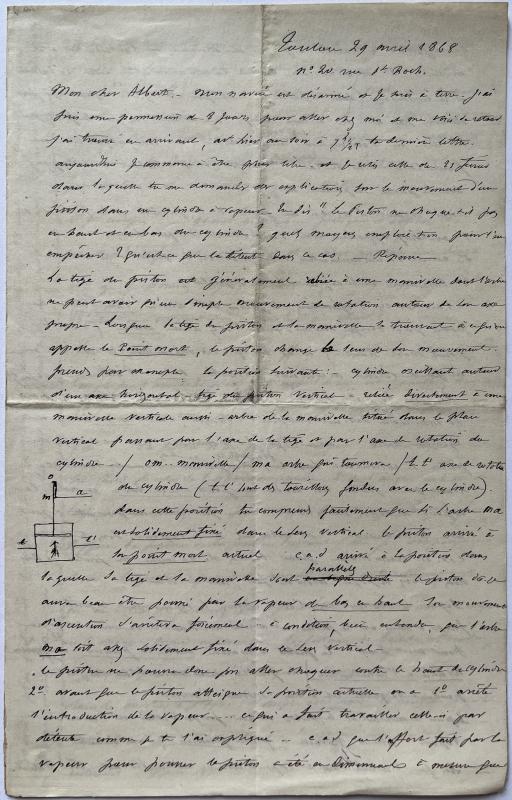 Toulon 29 avril 1868
n° 20 rue St Roch.
Mon cher Albert. – Mon navire est désarmé et je suis à terre. J'ai
pris une permission de 8 jours pour aller chez moi et me voici de retour
j'ai trouvé en arrivant, hier au soir à ta dernière lettre.
aujourd'hui je commence à être plus libre et je relis celle de 21
dans laquelle tu me demandes des explications sur le mouvement d'un
piston dans un cylindre à vapeur. Tu dis " le Piston ne choque t-il pas
en haut et en bas du cylindre ? quels moyens emploie t-on pour l'en
empêcher ? qu'est-ce que la détente dans ce cas. — Réponse
La tige du piston est généralement reliée à une manivelle dont l'arbre
ne peut avoir qu'un simple mouvement de rotation autour de son axe
propre – Lorsque la tige du piston et la manivelle se trouvent à ce qu'on
appelle le Point mort, le piston change le sens de son mouvement.
prends par exemple la position suivante : – cylindre oscillant autour
d'un axe horizontal. tige du piston vertical – reliée directement à une
manivelle verticale aussi – arbre de la manivelle situé dans le plan
vertical passant par l'axe de la tige et par l'axe de rotation du
cylindre – / om.. manivelle / ma arbre qui tournera / t.t' axe de rotation
du cylindre ( t.t' sont des tourillons fondus avec le cylindre).
dans cette position tu comprends parfaitement que si l'arbre ma
est solidement fixé dans le sens vertical. le piston arrivé à
son point mort actuel c.a.d arrivé à la position dans
laquelle sa tige et la manivelle sont parallèles le piston dis-je
aura beau être poussé par la vapeur de bas en haut son mouvement
d'ascension s'arrêtera forcément – à condition, bien entendu, que l'arbre
ma soit assez solidement fixé dans le sens vertical –
. le piston ne pourra donc pas aller choquer contre le haut du cylindre
2° avant que le piston atteigne sa position actuelle on a 1° arrêté
l'introduction de la vapeur ... ce qui a fait travailler celle-ci par
détente comme je te l'ai expliqué – c.a.d que l'effort fait par la
vapeur pour pousser le piston a été en diminuant à mesure que
o
m
a
t
t'